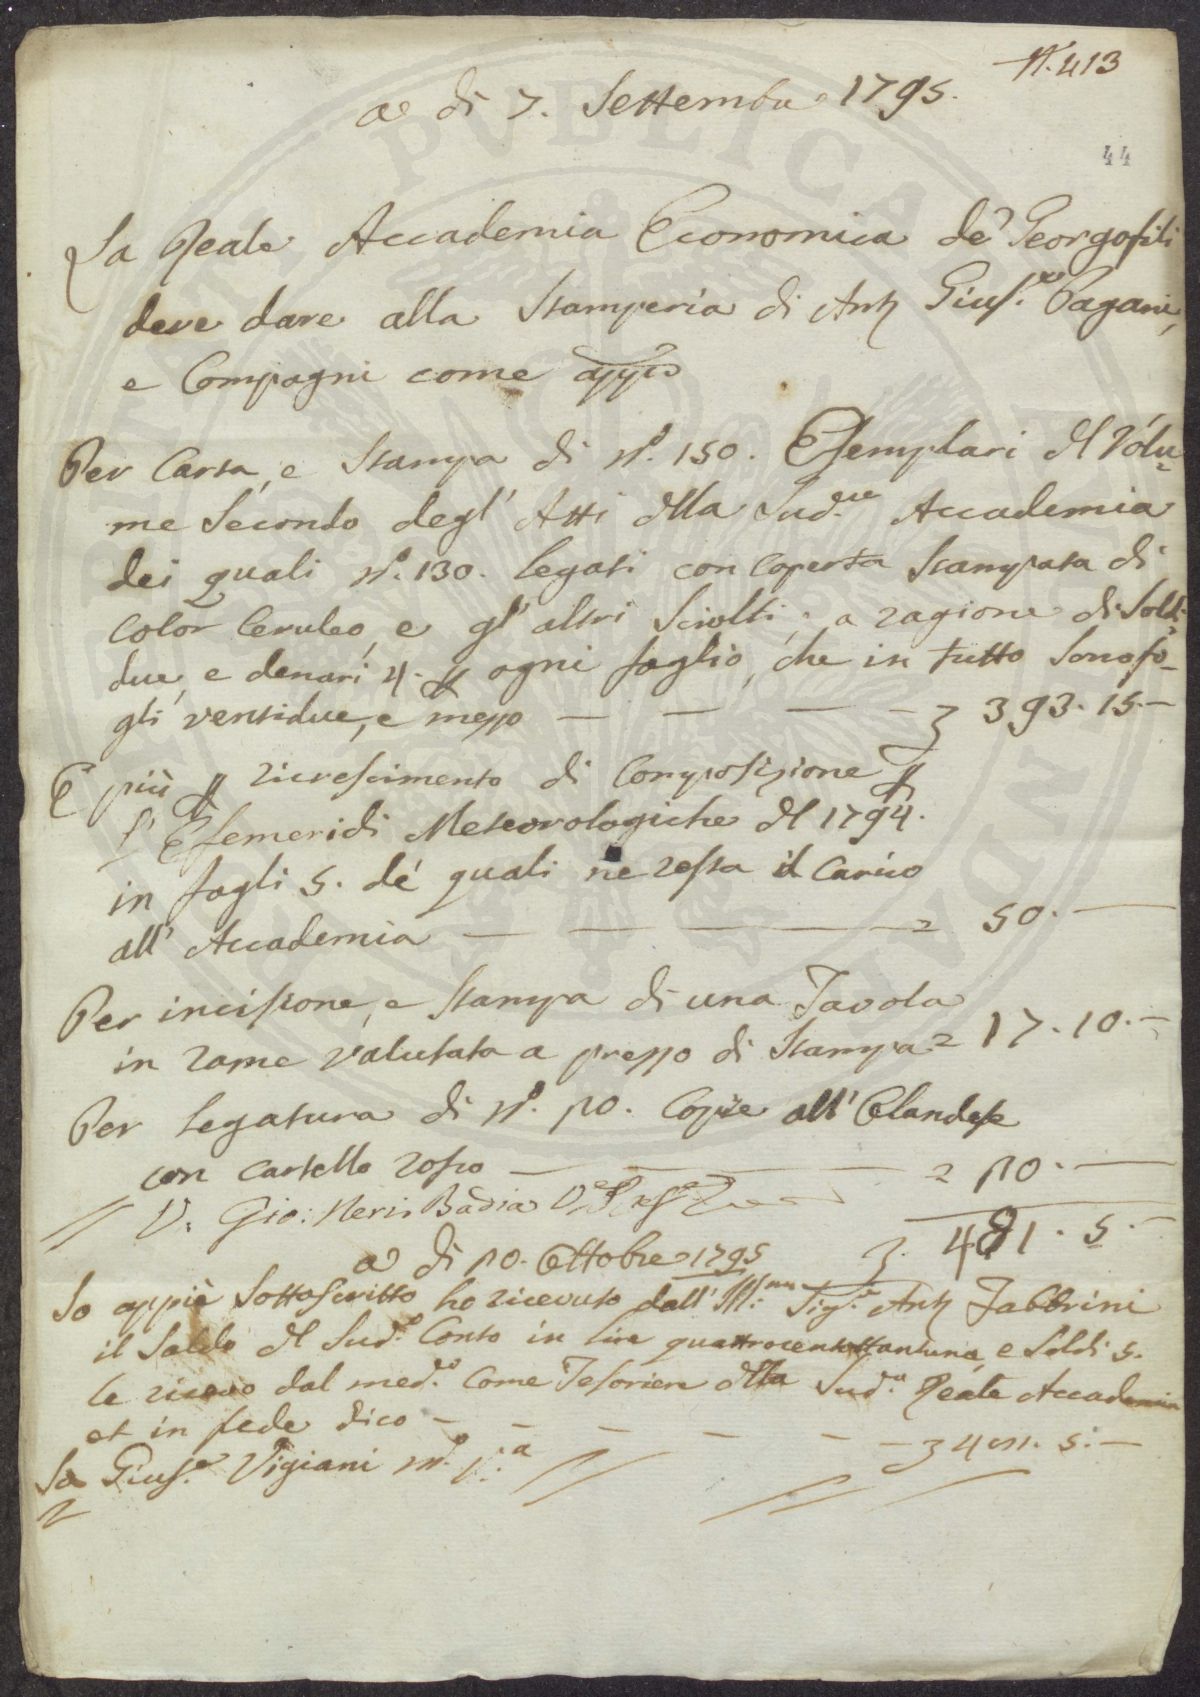 N. 413
a dì 7. Settembre 1795.
44
La Reale Accademia Economica de' Georgofili
deve dare alla Stamperia di Ant. Gius.e Pagani,
e Compagni come app.o
Per Carta, e Stampa di n.o 150. Esemplari del Volu-
me Secondo degl' Atti della Sud.ta Accademia
dei quali n.o 130. legati con coperta Stampata di
color Ceruleo, e gl' altri Sciolti, a ragione di Soldi
due, e denari 4. p ogni foglio, che in tutto Sono fo-
gli ventidue, e mezzo — — — — 393. 15. —
E più p ricrescimento di Composizione p
l' Efemeridi Meteorologiche del 1794.
in fogli 5. de' quali ne resta il Carico
all' Accademia — — — — 50. —
Per incisione, e Stampa di una Tavola
in rame valutata a prezzo di Stampa = 17. 10. —
Per legatura di n.o 20. Copie all' Olandese
con Cartello rosso — — — = 20. —
V. Gio: Neri Badia
481. 5. —
a dì 20. Ottobre 1795
Io appiè Sottoscritto ho ricevuto dall' Ill.mo Sig.e Ant. Fabbrini
il Saldo del Sud.o Conto in lire quattrocentottantuna, e Soldi 5.
le ricevo dal med.o Come Tesoriere della Sud.a Reale Accademia
et in fede dico — — — — — 481. 5. —
Io Gius.e Vigiani m.o p.a